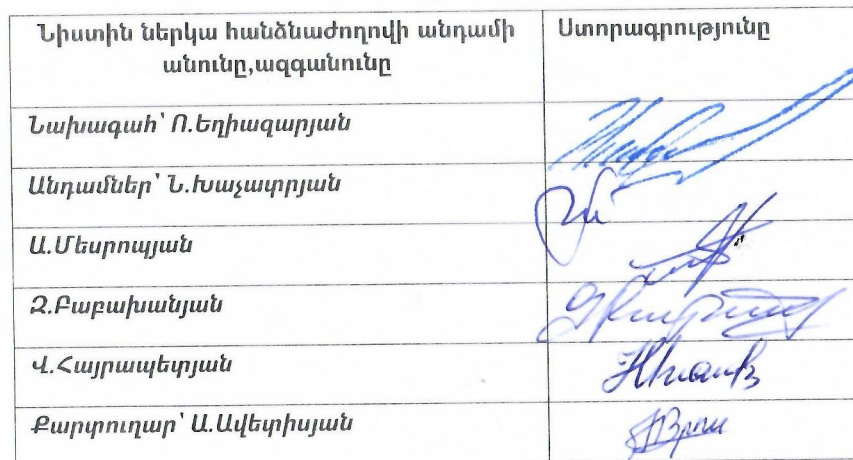 Նիստին ներկա հանձնաժողովի անդամի
անունը,ազգանունը
Ստորագրությունը
Նախագահ՝ Ո.Եղիազարյան
Անդամներ՝ Ն.Խաչատրյան
Ա.Մեսրոպյան
Զ.Բաբախանյան
Վ.Հայրապետյան
Քարտուղար՝ Ա.Ավետիսյան